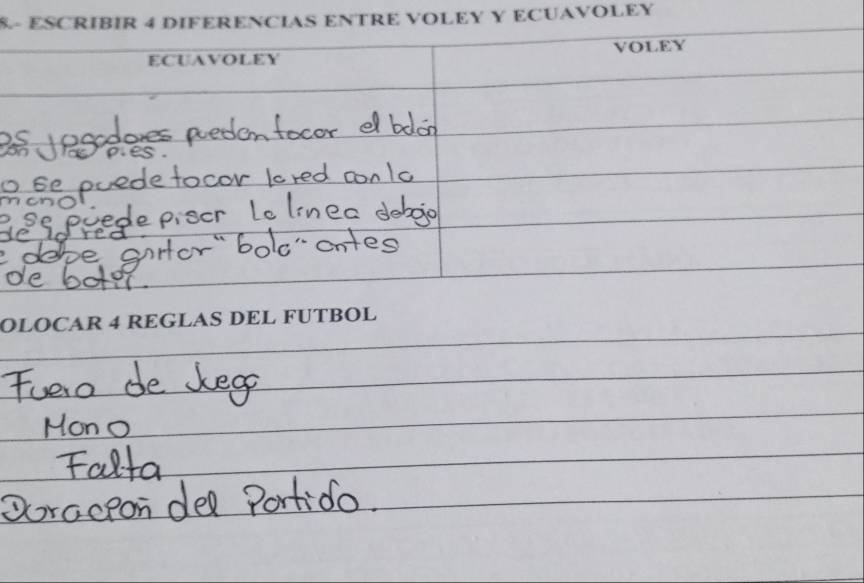 8.- ESCRIBIR 4 DIFERENCIAS ENTRE VOLEY Y ECUAVOLEY
ECUAVOLEY VOLEY
os jugadores pueden tocar el balón
con los pies.
o se puede tocar la red con la
mano.
o se puede pisar la linea debajo
de la red.
e debe gritar "bola" antes
de batir.
OLOCAR 4 REGLAS DEL FUTBOL
Fuera de Juego
Mano
Falta
Duracion del Partido.